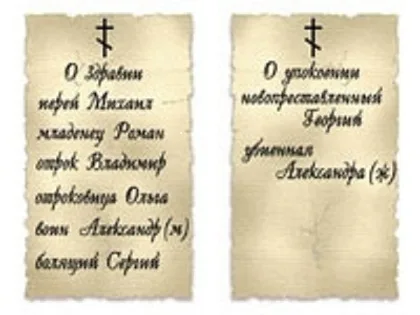 О Здравии
иерей Михаил
младенец Роман
отрок Владимир
отроковица Ольга
воин Александр (м)
болящий Сергий
О упокоении
новопреставленный
Георгий
убиенная
Александра (ж)